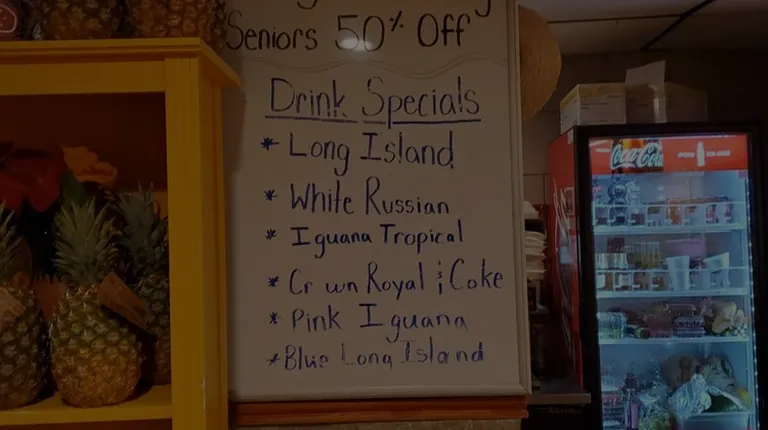 Seniors 50% Off
Drink Specials
* Long Island
* White Russian
* Iguana Tropical
* Cr wn Royal & Coke
* Pink Iguana
* Blue Long Island
Coca-Cola